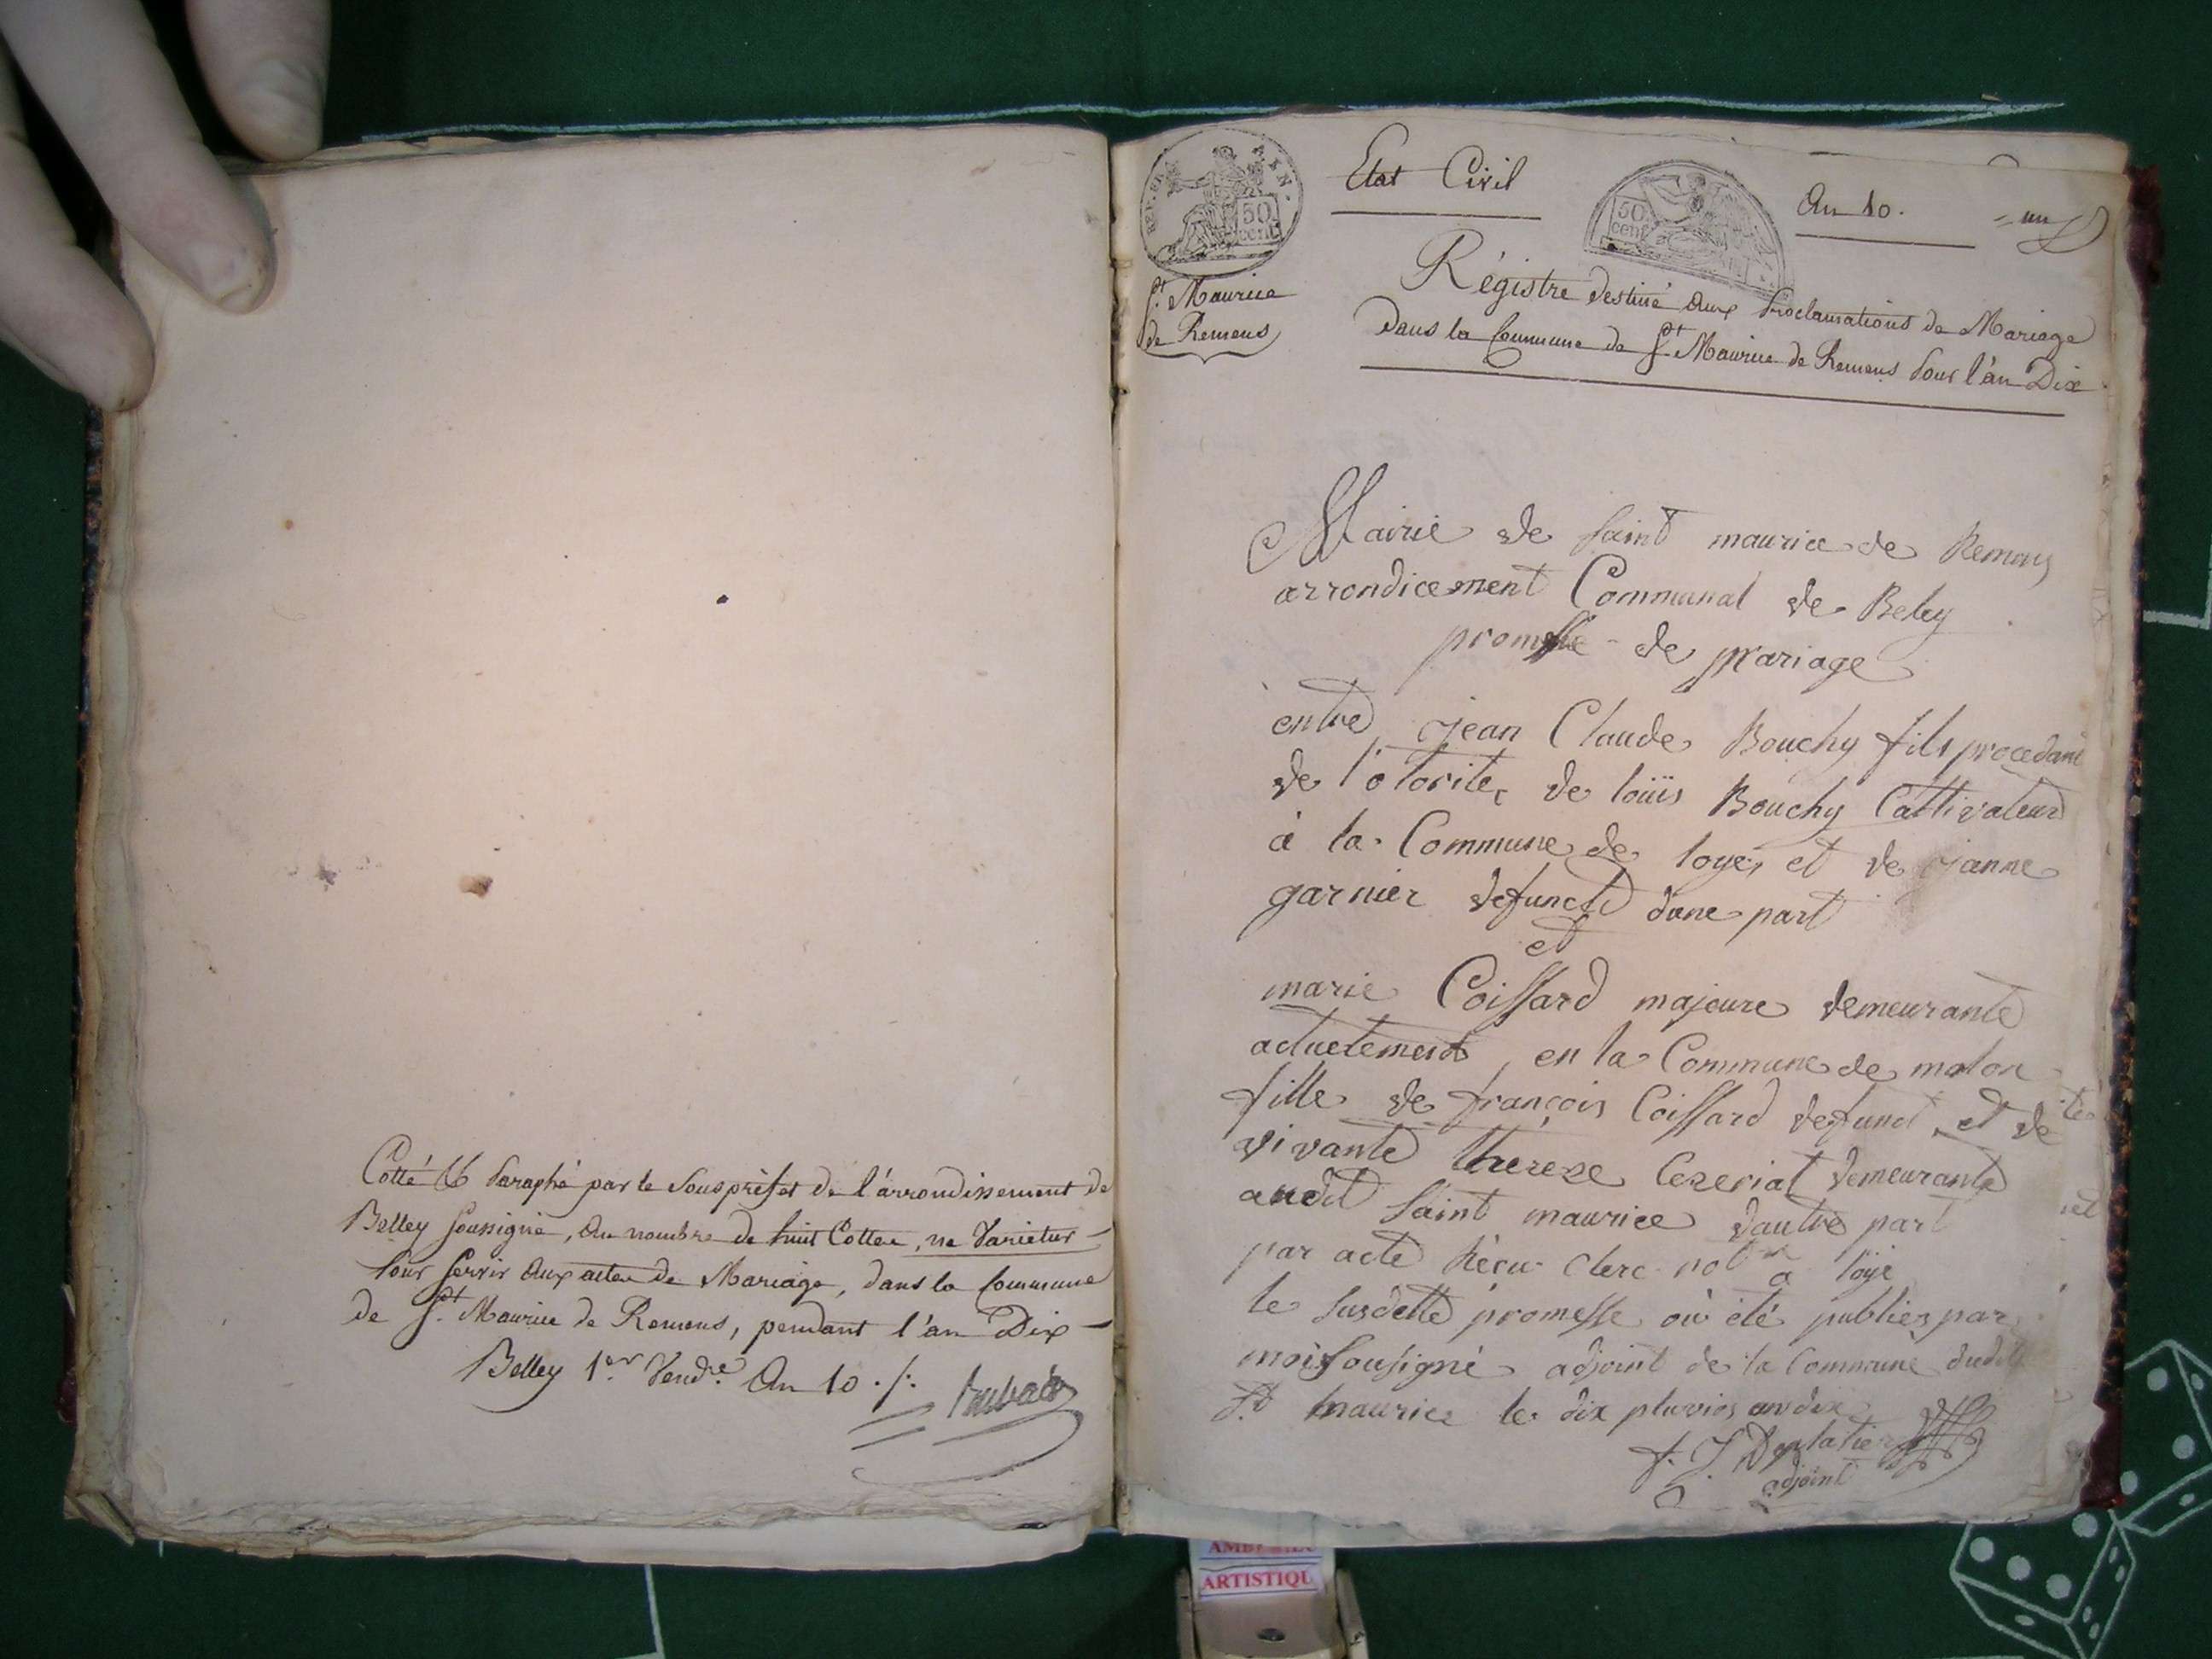 Cotté & Paraphé par le Sous préfet de l'arrondissement de
Belley Soussigné, Au nombre de huit Cottes, ne Varietur
Pour Servir aux actes de Mariage, dans la Commune
de St. Maurice de Remens, pendant l'an Dix
Belley 1er Vendre. An 10 ./.
REP. FRA
50
cent
St. Maurice
de Remens
Etat Civil
50
cent
An 10.
un
Régistre destiné aux Proclamations de Mariage
Dans la Commune de St. Maurice de Remens Pour l'an Dix
Mairie de Saint maurice de Remens
arrondicement Communal de Beley
promesse de mariage
entre jean Claude Bouchy fils procedant
de l'otorite, de loüis Bouchy Cultivateur
à la Commune de loye, et de janne
garnier defuncte dune part
et
marie Coissard majeure demeurante
actuelement, en la Commune de molon
fille de françois Coissard defunct, et de
vivante therese Cezeriat demeurante
audit Saint maurice dautre part
par acte Récu Clerc notre a loye
le susdette promesse où été publiez par
moi sousigné adjoint de la Commune dudit
St maurice le dix pluvios an dix
adjoint
AMB
ARTISTIQU